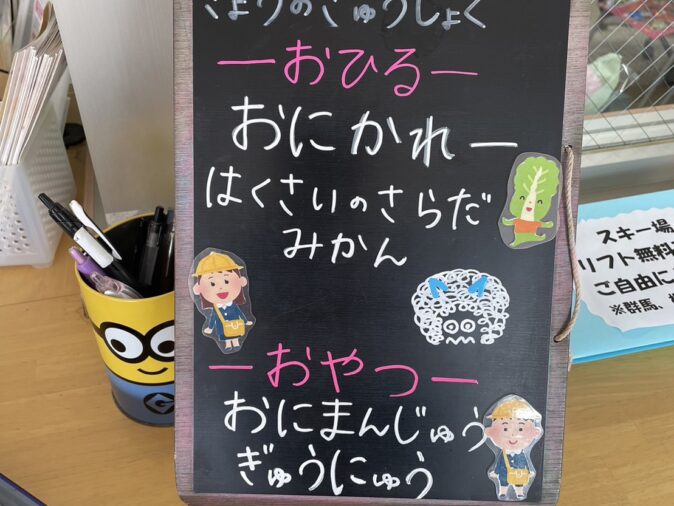 きょうのきゅうしょく
ーおひるー
おにかれー
はくさいのさらだ
みかん
ーおやつー
おにまんじゅう
ぎゅうにゅう
スキー場
リフト無料
ご自由に
※群馬、